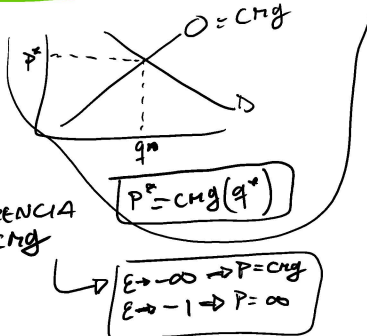 O = CMg
P*
D
q*
P* = CMg(q*)
ENCIA
CMg
ε→-∞ ⇒ P = CMg
ε→-1 ⇒ P = ∞